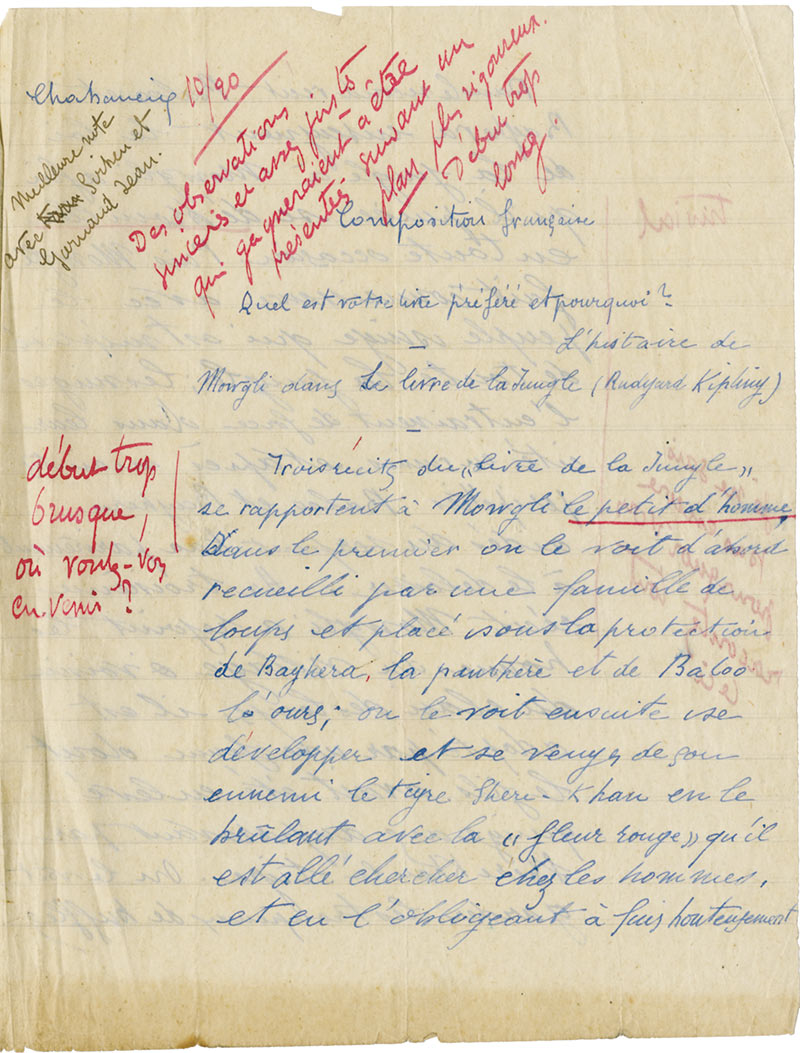 10/20
Des observations
sincères et assez justes
qui gagneraient à être
présentées suivant un
plan plus rigoureux.
Début trop
long.
Meilleure note
avec et
Jean.
Composition française
Quel est votre livre préféré et pourquoi?
L'histoire de
Mowgli dans Le livre de la Jungle (Rudyard Kipling)
début trop
brusque,
où voulez-vous
en venir?
Trois récits du "Livre de la Jungle"
se rapportent à Mowgli le petit d'homme,
Dans le premier on le voit d'abord
recueilli par une famille de
loups et placé sous la protection
de Baghera, la panthère et de Baloo
l'ours; on le voit ensuite se
développer et se venger de son
ennemi le tigre Shere-Khan en le
brûlant avec la "fleur rouge" qu'il
est allé chercher chez les hommes,
et en l'obligeant à fuir honteusement